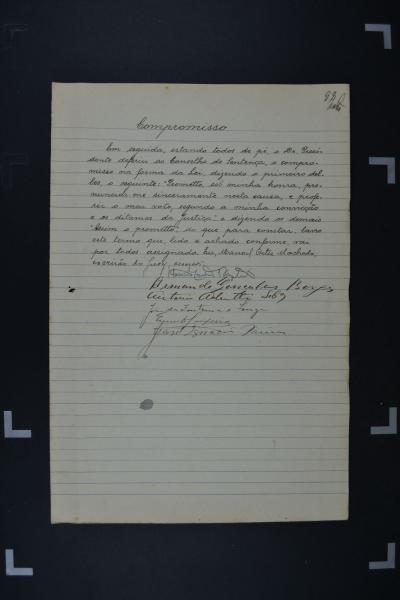 92
Compromisso
Em seguida, estando todos de pé, o Dr. Presi-
dente deferiu ao Conselho de Sentença, o compro-
misso na forma da lei, dizendo o primeiro del-
les, o seguinte: "Prometto, sob minha honra, pro-
nunciar-me sinceramente nesta causa, e profe-
rir o meu voto, segundo a minha convicção
e os dictames da Justiça", e dizendo os demais
"Assim o prometto". Do que para constar, lavro
este termo que, lido e achado conforme, vai
por todos assignado. Eu, Manoel Machado,
escrivão do jury,
Armando Gonçalves Borges
Antonio
José Ignacio